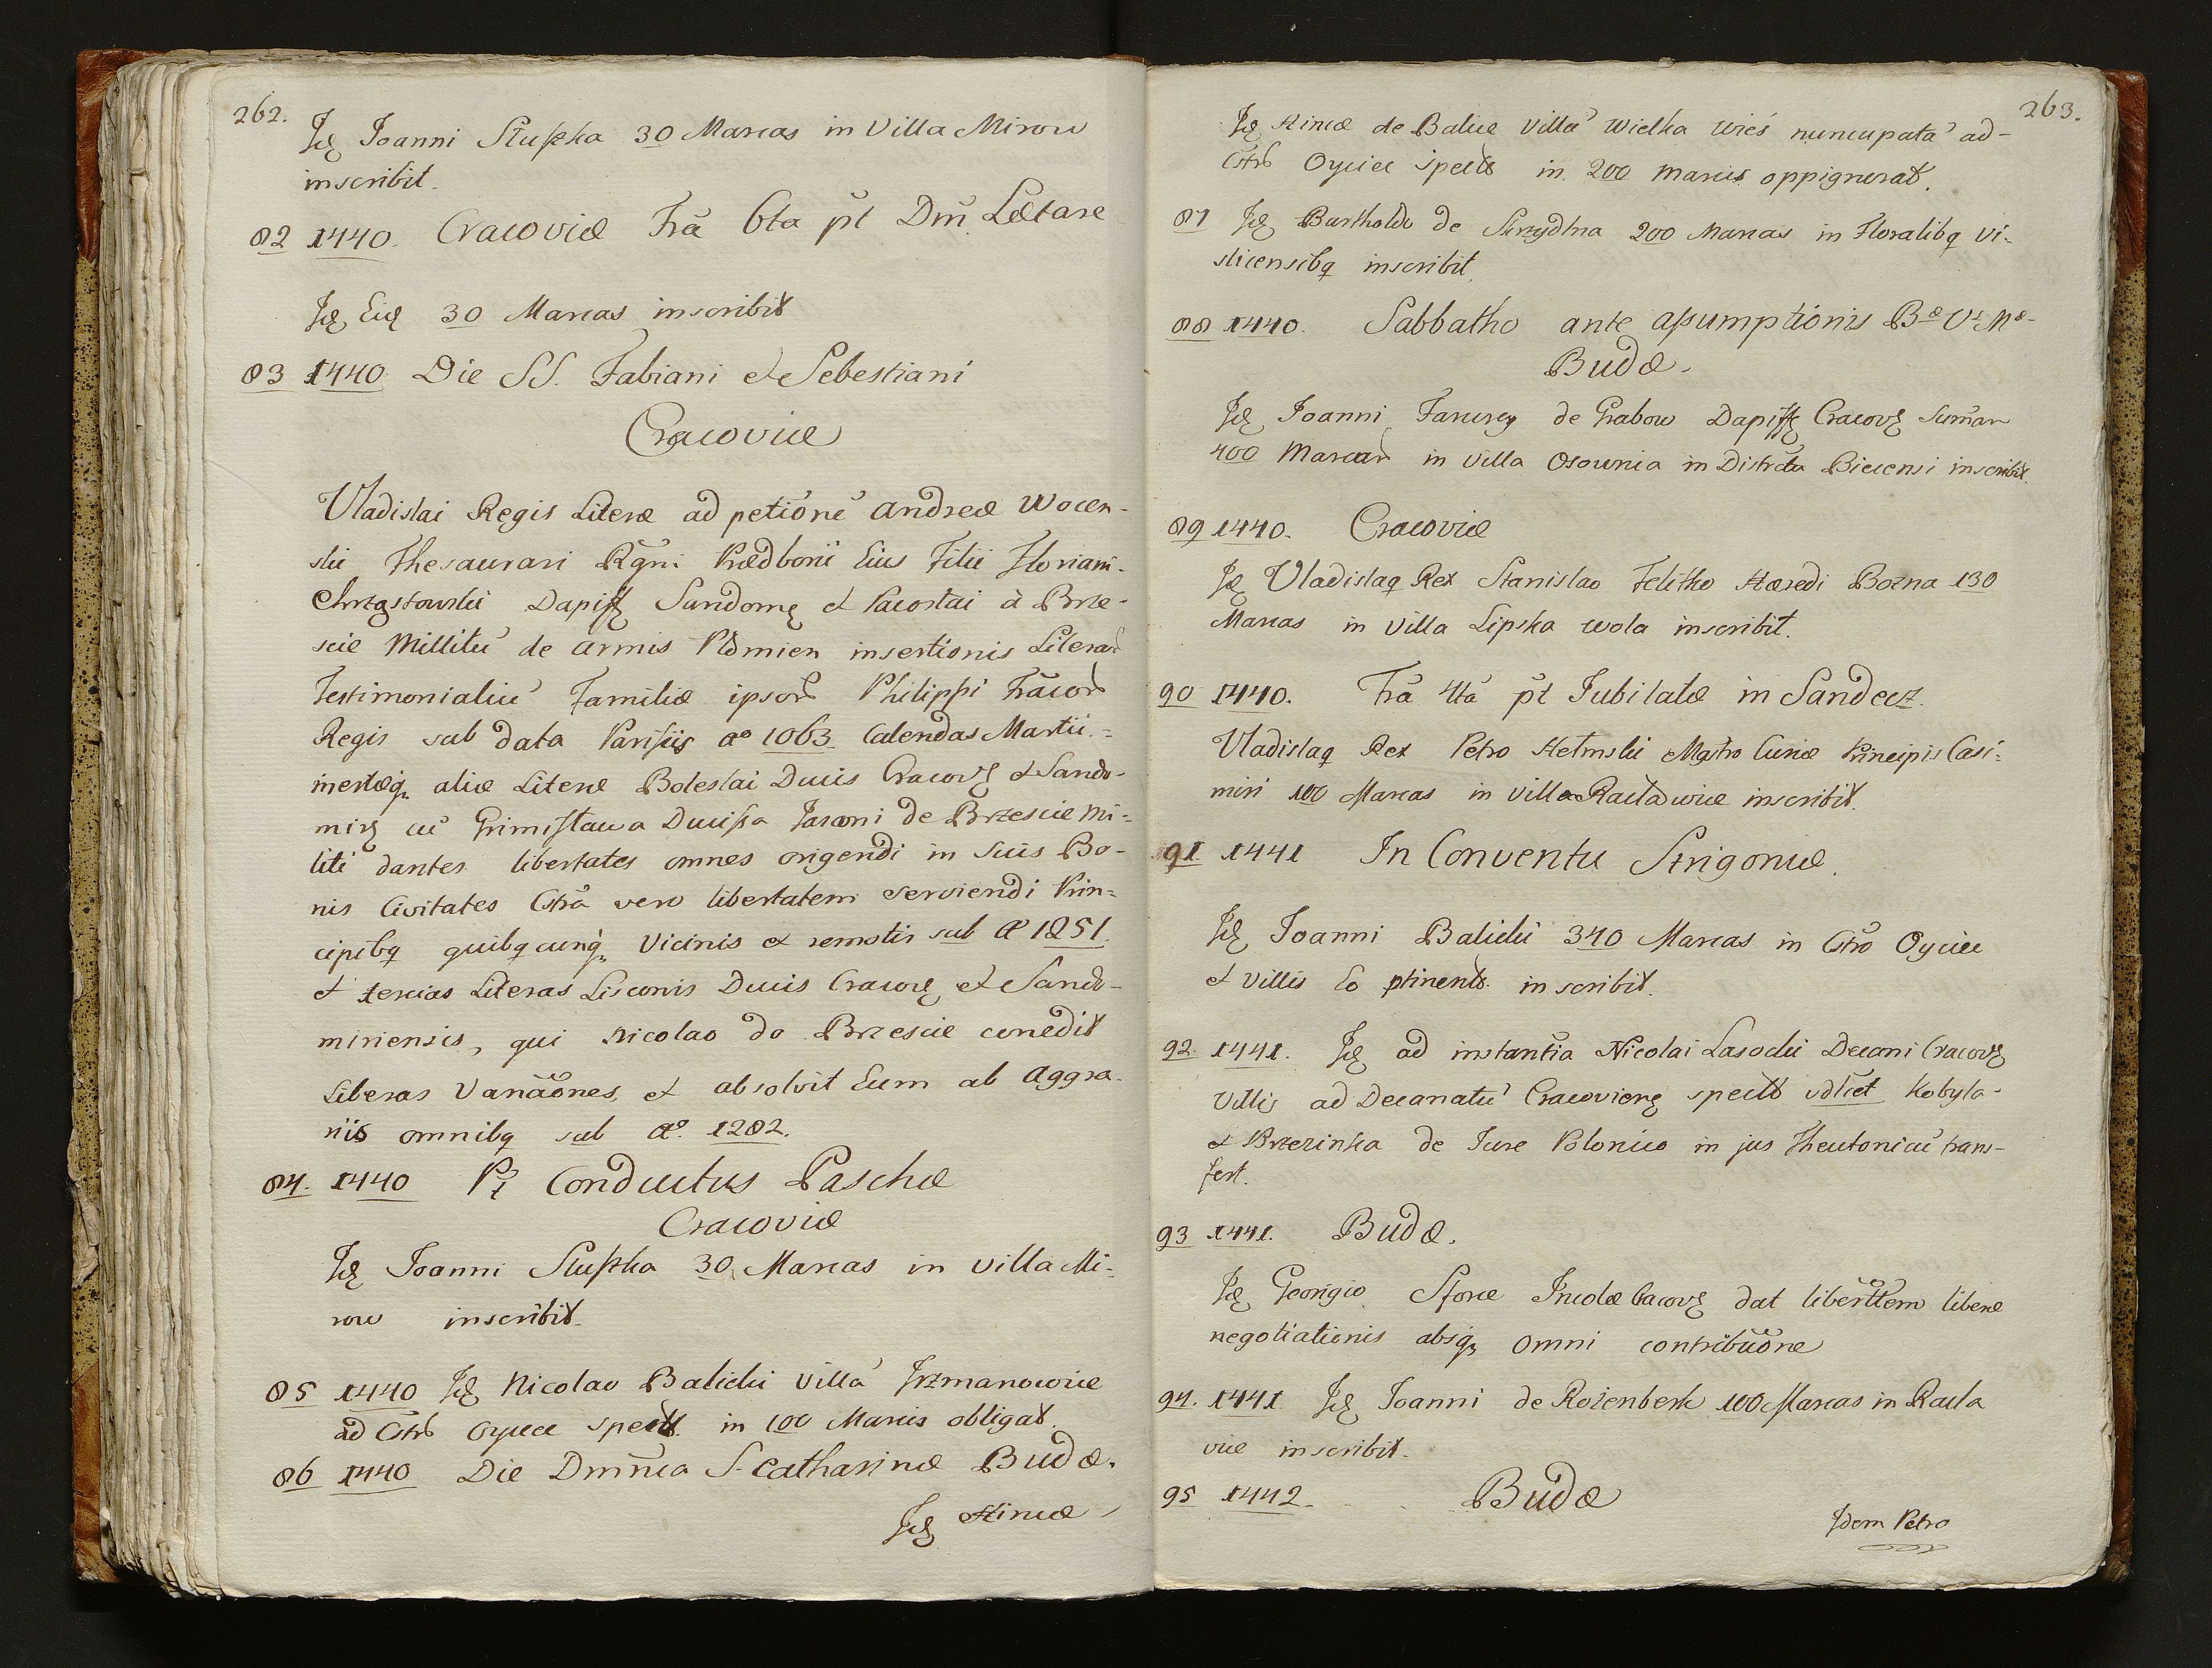 262.
Id Joanni Słupka 30 Marcas in Villa Mirow
inscribit.
82 1440. Cracoviæ Fra 6ta pt Dm̄ Lætare
Id Eid 30 Marcas inscribit
83 1440 Die SS. Fabiani et Sebestiani
Cracoviæ
Vladislai Regis Literæ ad petitionē Andreæ Wocen-
skii Thesaurari Rgni Prædborii Eius Filii Floriani
Chrząstowskii Dapiff Sandom et Pacostai à Brze-
scie Millitū de Armis Płomien insertionis Literar
Testimonialiū Familiæ ipsor Philippi Fracor
Regis sub data Parisiis Aº 1063 Calendas Martii =
inertæq3 aliæ Literæ Boleslai Ducis Cracov et Sando-
mir cū Grimisława Ducissa Jaraoni de Brzescie mi-
liti dantes libertates omnes erigendi in Suis Bo-
nis Civitates Cstra vero libertatem serviendi Prin-
cipibq quibqcunq3 Vicinis et remotis sub Aº 1251.
et tercias Literas Lisconis Ducis Cracov et Sando-
miriensis, qui Nicolao de Brzescie concedit
Liberas Vanāōnes, et absolvit Eum ab Aggra-
niis omnibq sub Aº. 1282.
84. 1440 Pt Conductus Paschæ
Cracoviæ
Id Joanni Słupka 30 Marcas in villa Mi-
row inscribit.
85 1440 Id Nicolao Balicki villā Jrzmanowice
ad Cstr Oycice spectt in 100 Marcis obligat.
86 1440 Die Dmnica S. Catharinæ Budæ.
Id Hincæ
263.
Id Hincæ de Balice villā Wielka wieś nuncupatā ad-
Cstr Oyciec spectt in 200 marcis oppignerat.
87 Id Bartholdo de Strzydlna 200 Marcas in Floralibq Vi-
slicensibq inscribit
88 1440. Sabbatho ante Assumptionis Bæ Vs Mæ
Budæ.
Id Joanni Farurey de Grabow Dapiff Cracov Sumam
400 Marcar in villa Osownia in Distrctu Biecensi inscribit.
89 1440. Cracoviæ
Id Vladislaq Rex Stanislao Felitko Hæredi Bozna 130
Marcas in villa Lipska wola inscribit.
90 1440. Fra 4ta pt Jubilatæ in Sandecz.
Vladislaq Rex Petro Hetmskii Mgtro Curiæ Principis Casi-
miri 100 Marcas in villa Racławice inscribit.
91 1441 In Conventu Strigoniæ.
Id Joanni Balicki 340 Marcas in Cstro Oyciec
et villis Eo ptinentt. inscribit.
92. 1441. Id ad instantia Nicolai Lasockii Decani Cracov
Villis ad Decanatū Cracovien spectt vdlicet Kobyla-
et Brzezinka de Jure Polonico in jus Theutonicū trans-
fert.
93 1441. Budæ.
Id Georigio Sforc Incolæ Cacov dat liberttem liberæ
negotiationis absq3 omni contribuōne
94. 1441 Id Joanni de Rożenberk 100 Marcas in Racła
vice inscribit.
95 1442. Budæ
Jdem Petro